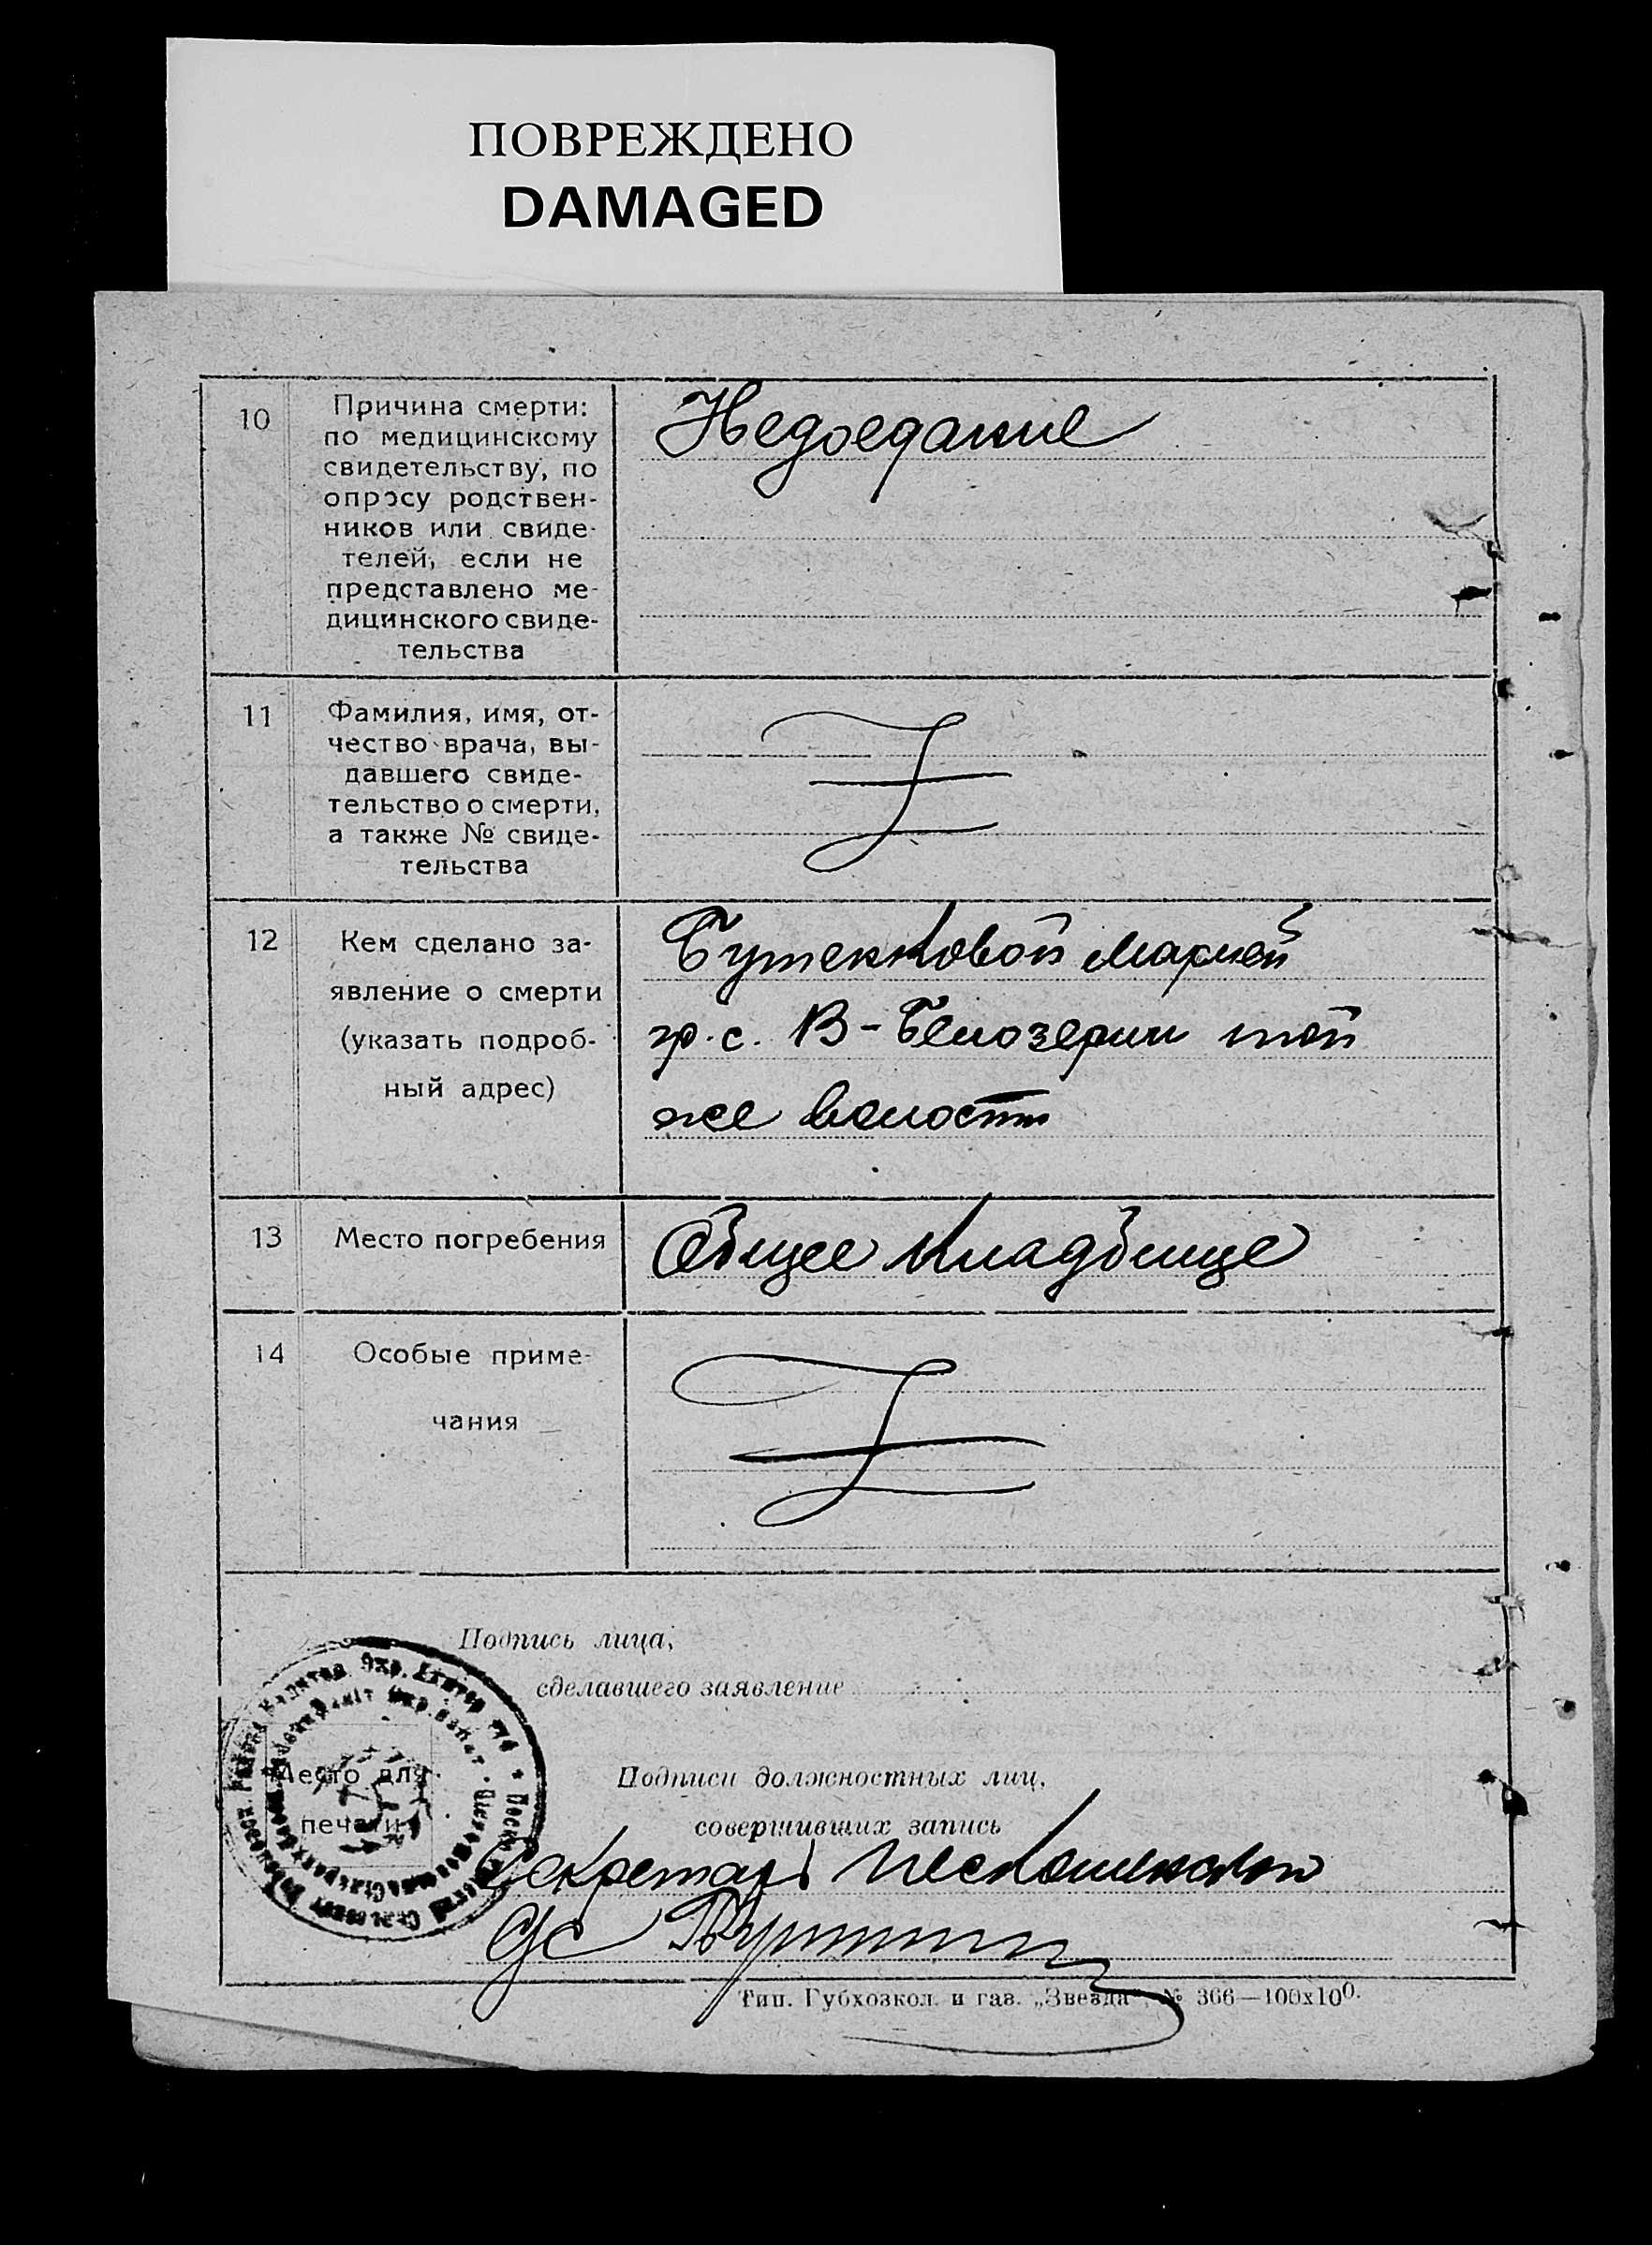 ПОВРЕЖДЕНО
DAMAGED
10
Причина смерти:
по медицинскому
свидетельству, по
опросу родствен-
ников или свиде-
телей, если не
представлено ме-
дицинского свиде-
тельства
Недоедание
11
Фамилия, имя, от-
чество врача, вы-
давшего свиде-
тельство о смерти,
а также № свиде-
тельства
12
Кем сделано за-
явление о смерти
(указать подроб-
ный адрес)
Бутенковой Марией
гр. с. В-Белозерки той
же волости
13
Место погребения
Общее кладбище
14
Особые приме-
чания
Подпись лица,
сделавшего заявление
Место для
печати
Подписи должностных лиц,
совершивших запись
Секретарь
Тип. Губхозкол. и газ. „Звезда“, № 366—100х100.